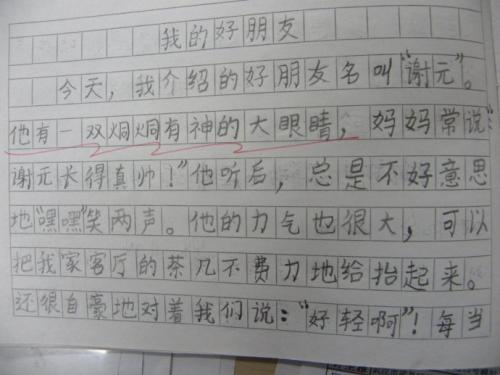 我的好朋友
今天，我介绍的好朋友名叫“谢元”。
他有一双炯炯有神的大眼睛，妈妈常说：
谢元长得真帅！”他听后，总是不好意思
地“嘿嘿”笑两声。他的力气也很大，可以
把我家客厅的茶几不费力地给抬起来。
还很自豪地对着我们说：“好轻啊”！每当